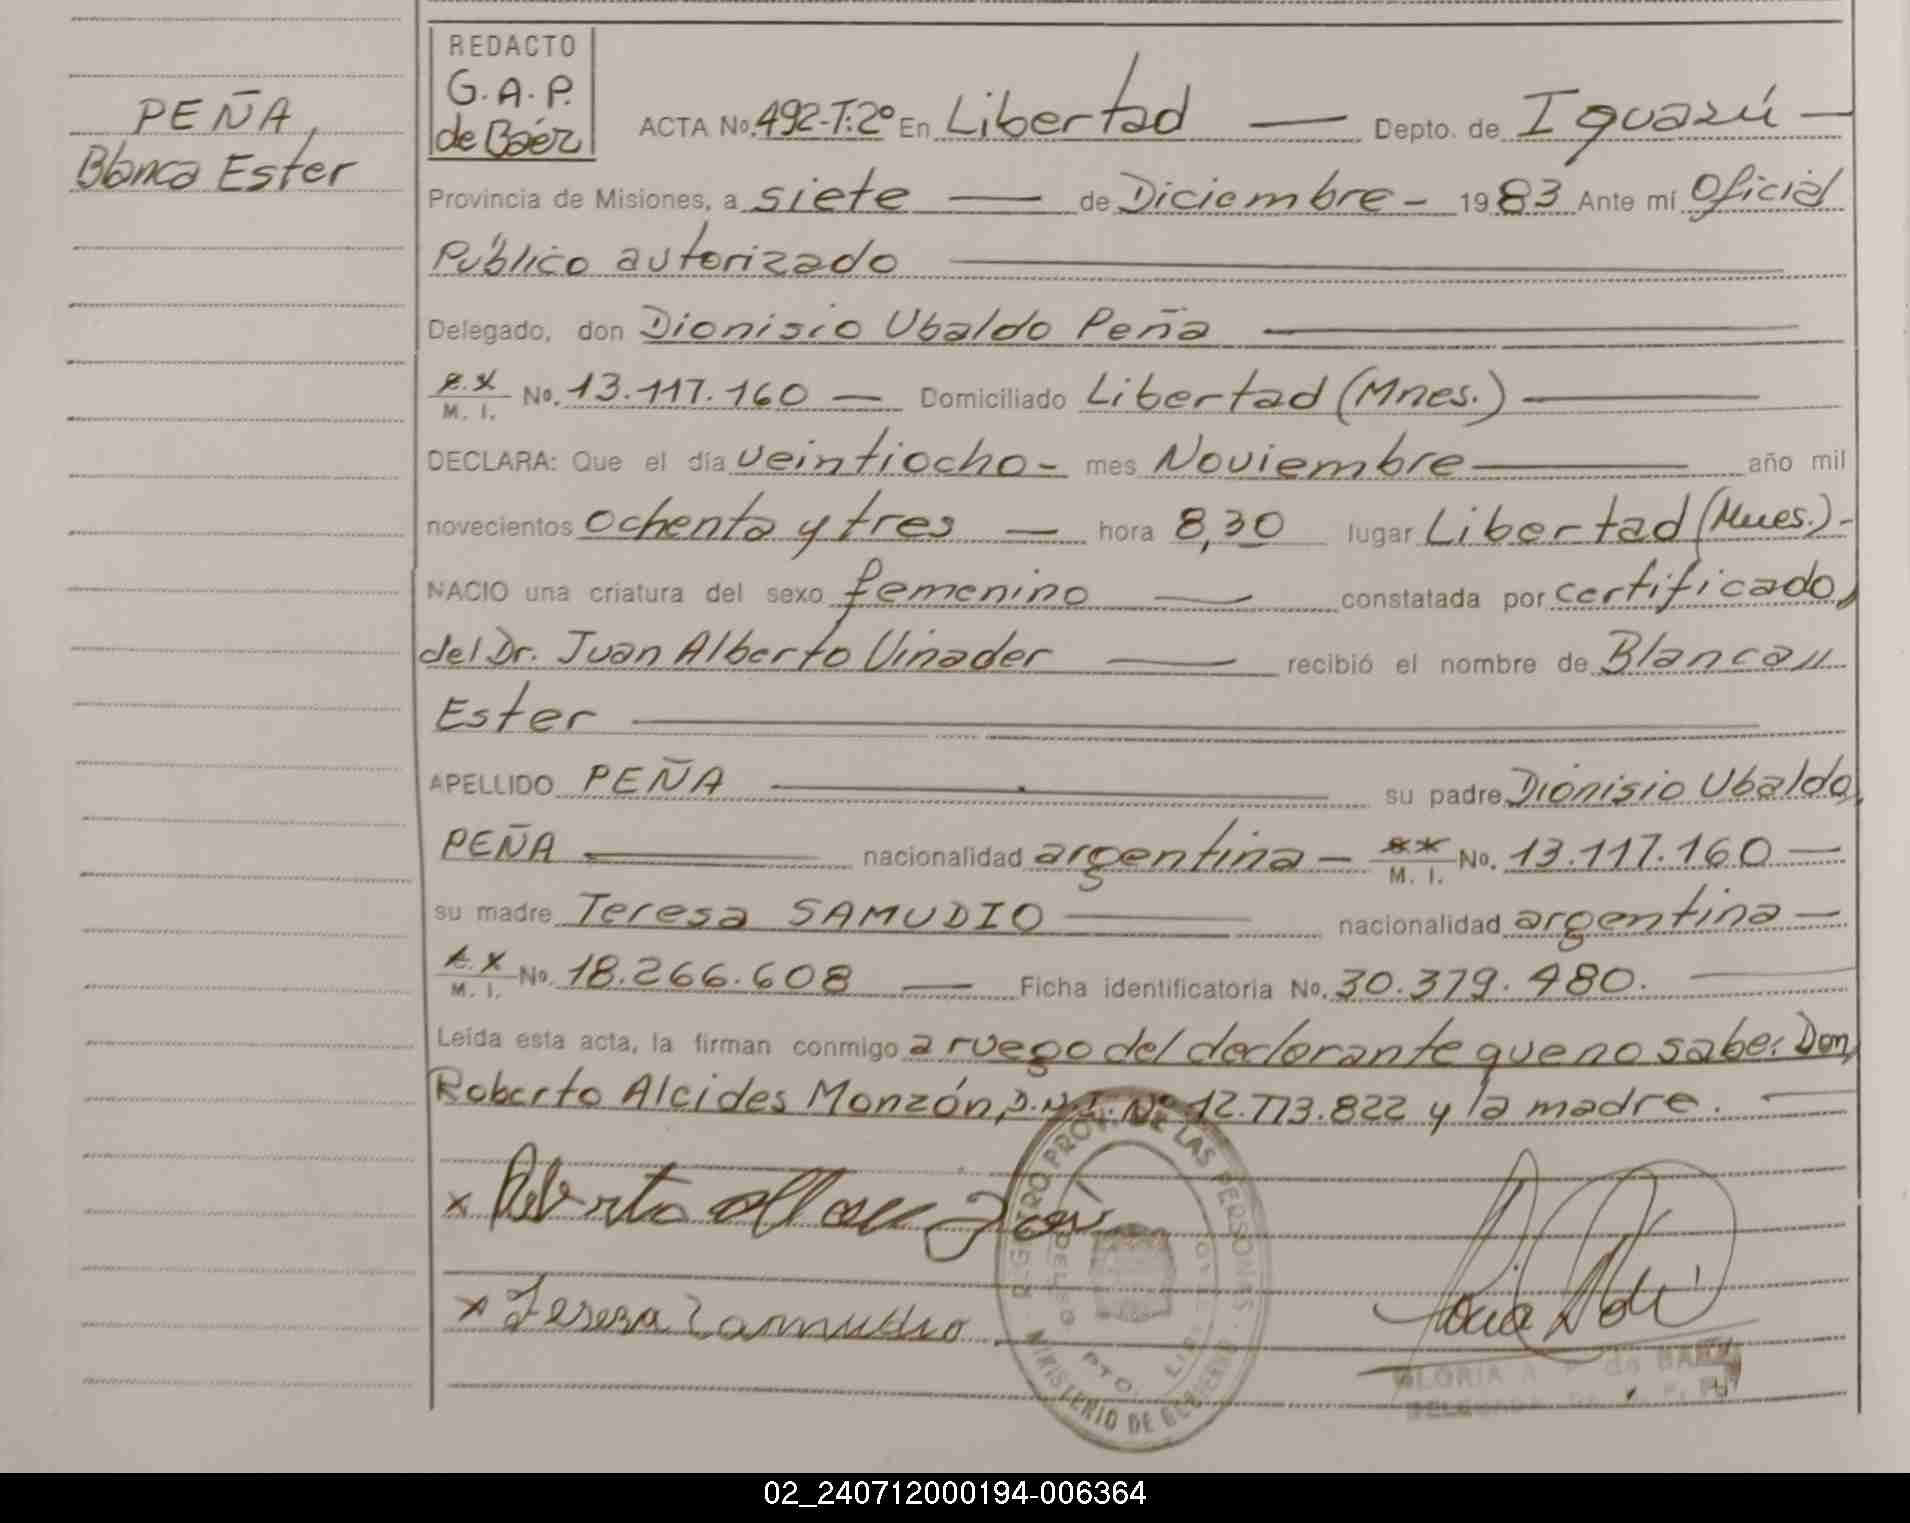 PEÑA,
Blanca Ester
REDACTO
G.A.P.
de Báez
ACTA No. 492-T:2º En Libertad — Depto. de Iguazú —
Provincia de Misiones, a siete — de Diciembre - 1983 Ante mí Oficial
Público autorizado —
Delegado, don Dionisio Ubaldo Peña —
M. I. No. 13.117.160 — Domiciliado Libertad (Mnes.) —
DECLARA: Que el día veintiocho - mes Noviembre — año mil
novecientos ochenta y tres — hora 8,30 lugar Libertad (Mnes.) -
NACIO una criatura del sexo femenino — constatada por certificado
del Dr. Juan Alberto Vinader — recibió el nombre de Blanca //
Ester —
APELLIDO PEÑA — su padre Dionisio Ubaldo
PEÑA — nacionalidad argentina - M. I. No. 13.117.160 —
su madre Teresa SAMUDIO — nacionalidad argentina —
M. I. No. 18.266.608 — Ficha identificatoria No. 30.379.480. —
Leída esta acta, la firman conmigo a ruego del declarante que no sabe: Don
Roberto Alcides Monzón, D.N.I. Nº 12.773.822 y la madre. —
x Roberto
x Teresa Zamudio
REGISTRO PROV. DE LAS PERSONAS
MINISTERIO DE GOBIERNO
GLORIA A. P. de BAEZ
02_240712000194-006364